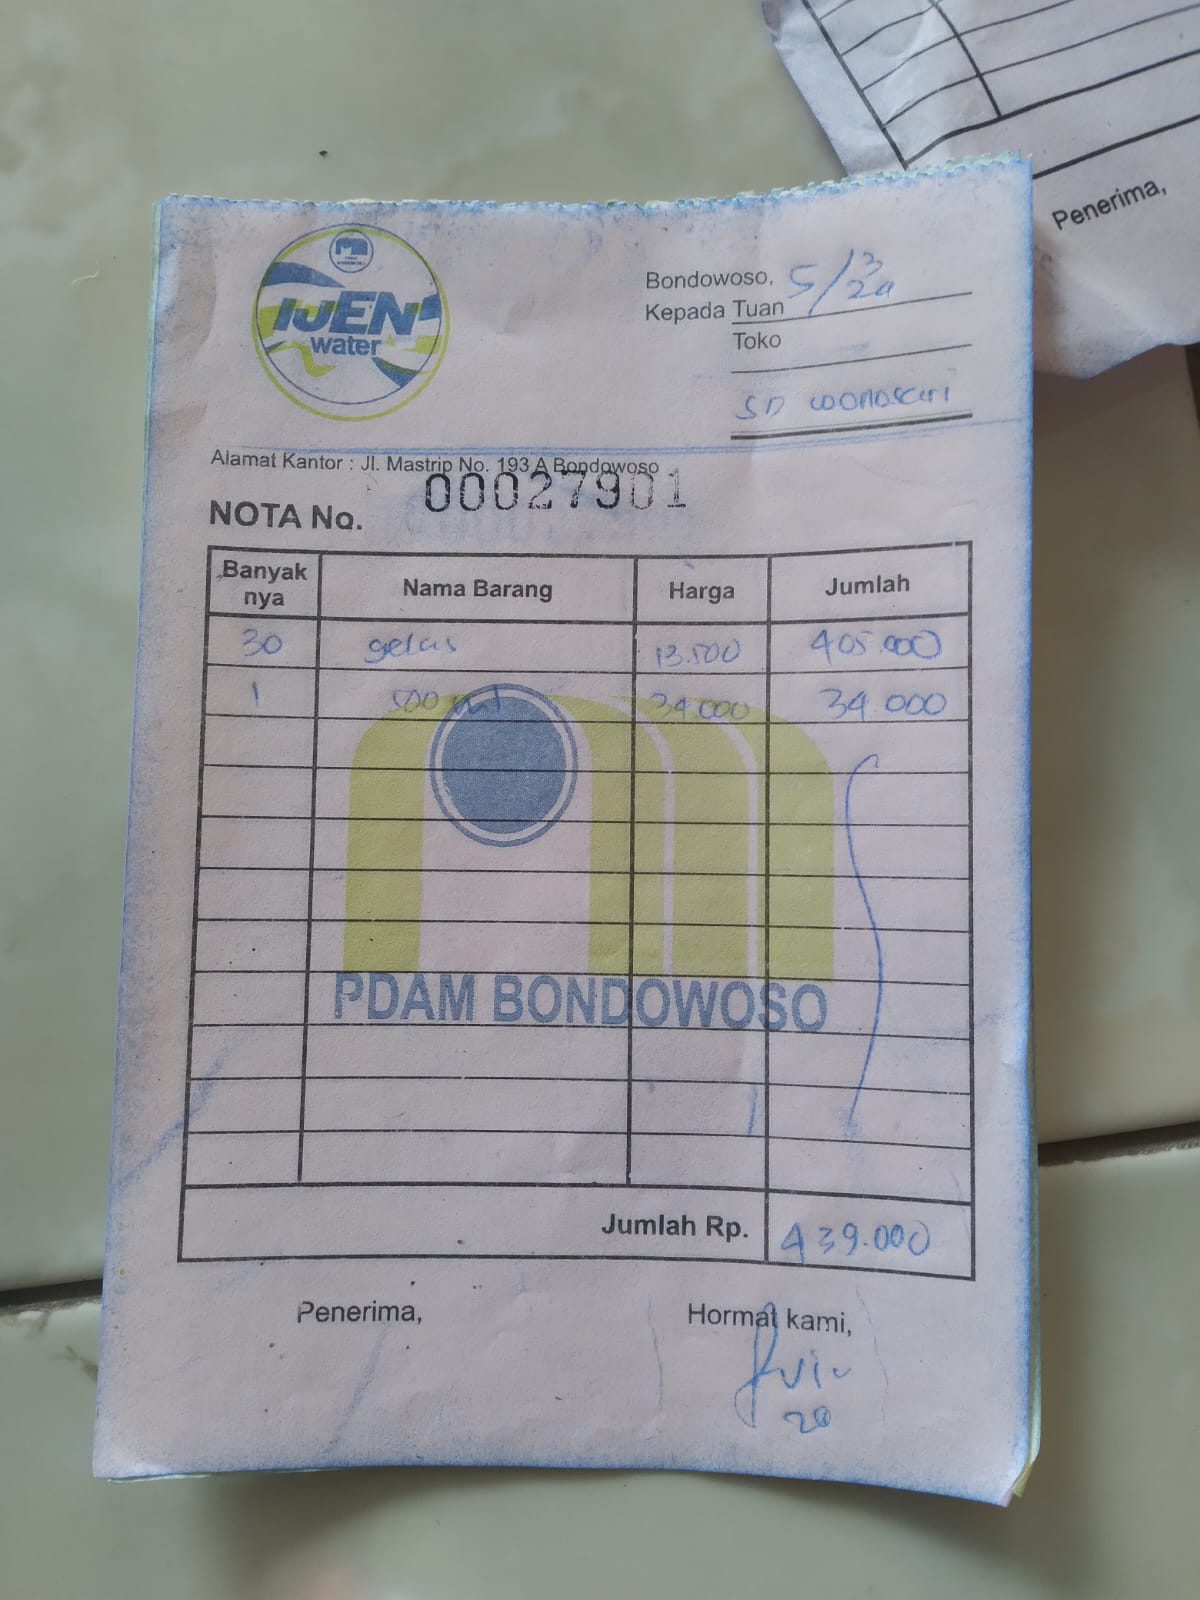 IJEN
water
Bondowoso, 5/3 24
Kepada Tuan
Toko
SD WONOSARI
Alamat Kantor : Jl. Mastrip No. 193 A Bondowoso
NOTA No. 00027901
Banyak nya Nama Barang Harga Jumlah
30 gelas 13.500 405.000
1 500 ml 34.000 34.000
PDAM BONDOWOSO
Jumlah Rp. 439.000
Penerima, Hormat kami,
Penerima,